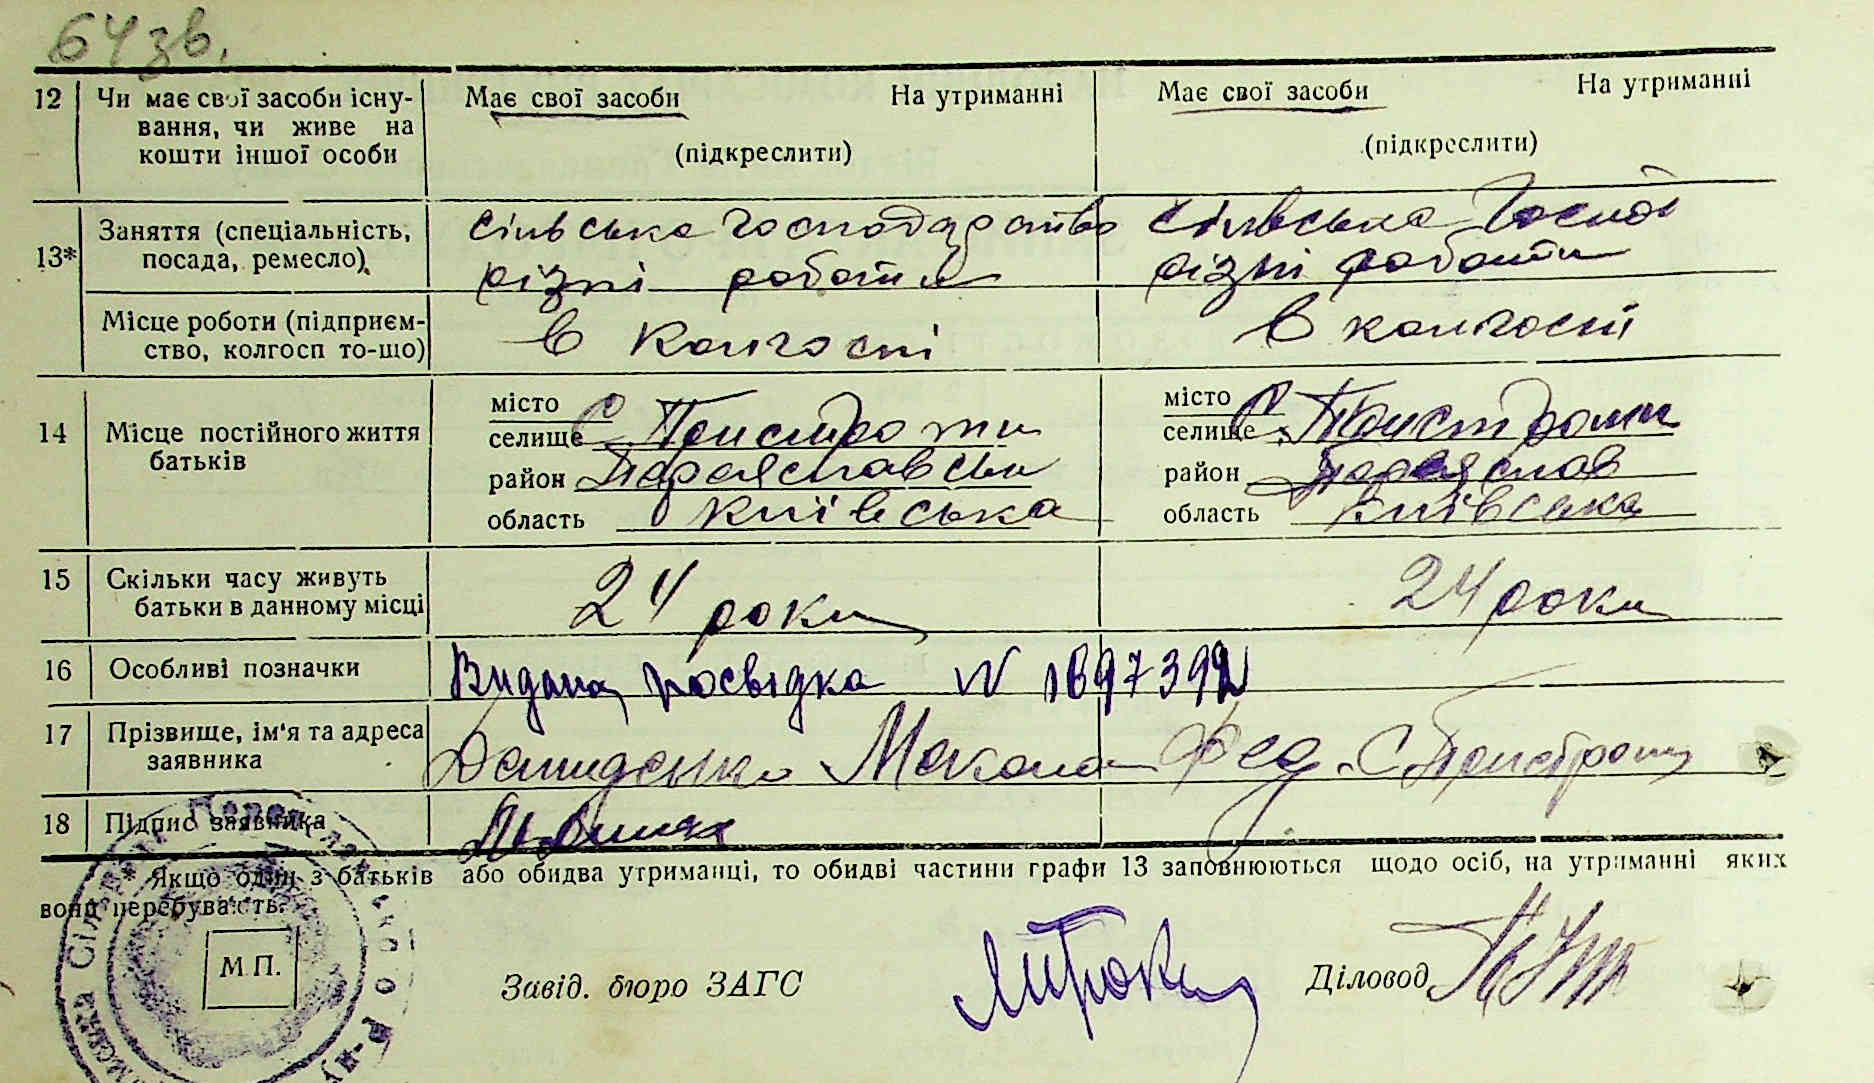 64 зв.
12 Чи має свої засоби існу-
вання, чи живе на
кошти іншої особи
Має свої засоби На утриманні
(підкреслити)
Має свої засоби На утриманні
(підкреслити)
13* Заняття (спеціальність,
посада, ремесло)
сільське господарство
різні роботи
сільське господ
різні роботи
Місце роботи (підприєм-
ство, колгосп то-що)
в колгоспі
в колгоспі
14 Місце постійного життя
батьків
місто
селище С Пристроми
район Переяславськи
область Київська
місто
селище С Пристроми
район Переяслав
область Київська
15 Скільки часу живуть
батьки в данному місці
24 роки
24 роки
16 Особливі позначки
Видана посвідка N
17 Прізвище, ім'я та адреса
заявника
Демиденко Микола Фед. С Пристроми
18 Підпис заявника
Якщо один з батьків або обидва утриманці, то обидві частини графи 13 заповнюються щодо осіб, на утриманні яких
вони перебувають.
М.П.
Завід. бюро ЗАГС
Діловод